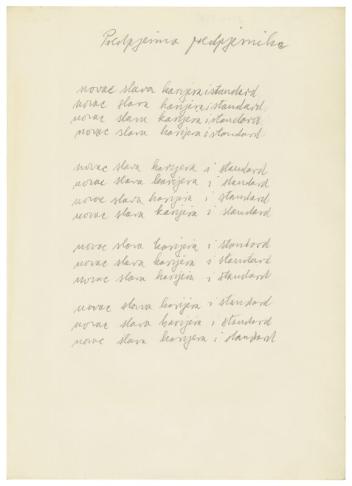 Potpjesma potpjesnika
novac slava karijera i standard
novac slava karijera i standard
novac slava karijera i standard
novac slava karijera i standard
novac slava karijera i standard
novac slava karijera i standard
novac slava karijera i standard
novac slava karijera i standard
novac slava karijera i standard
novac slava karijera i standard
novac slava karijera i standard
novac slava karijera i standard
novac slava karijera i standard
novac slava karijera i standard